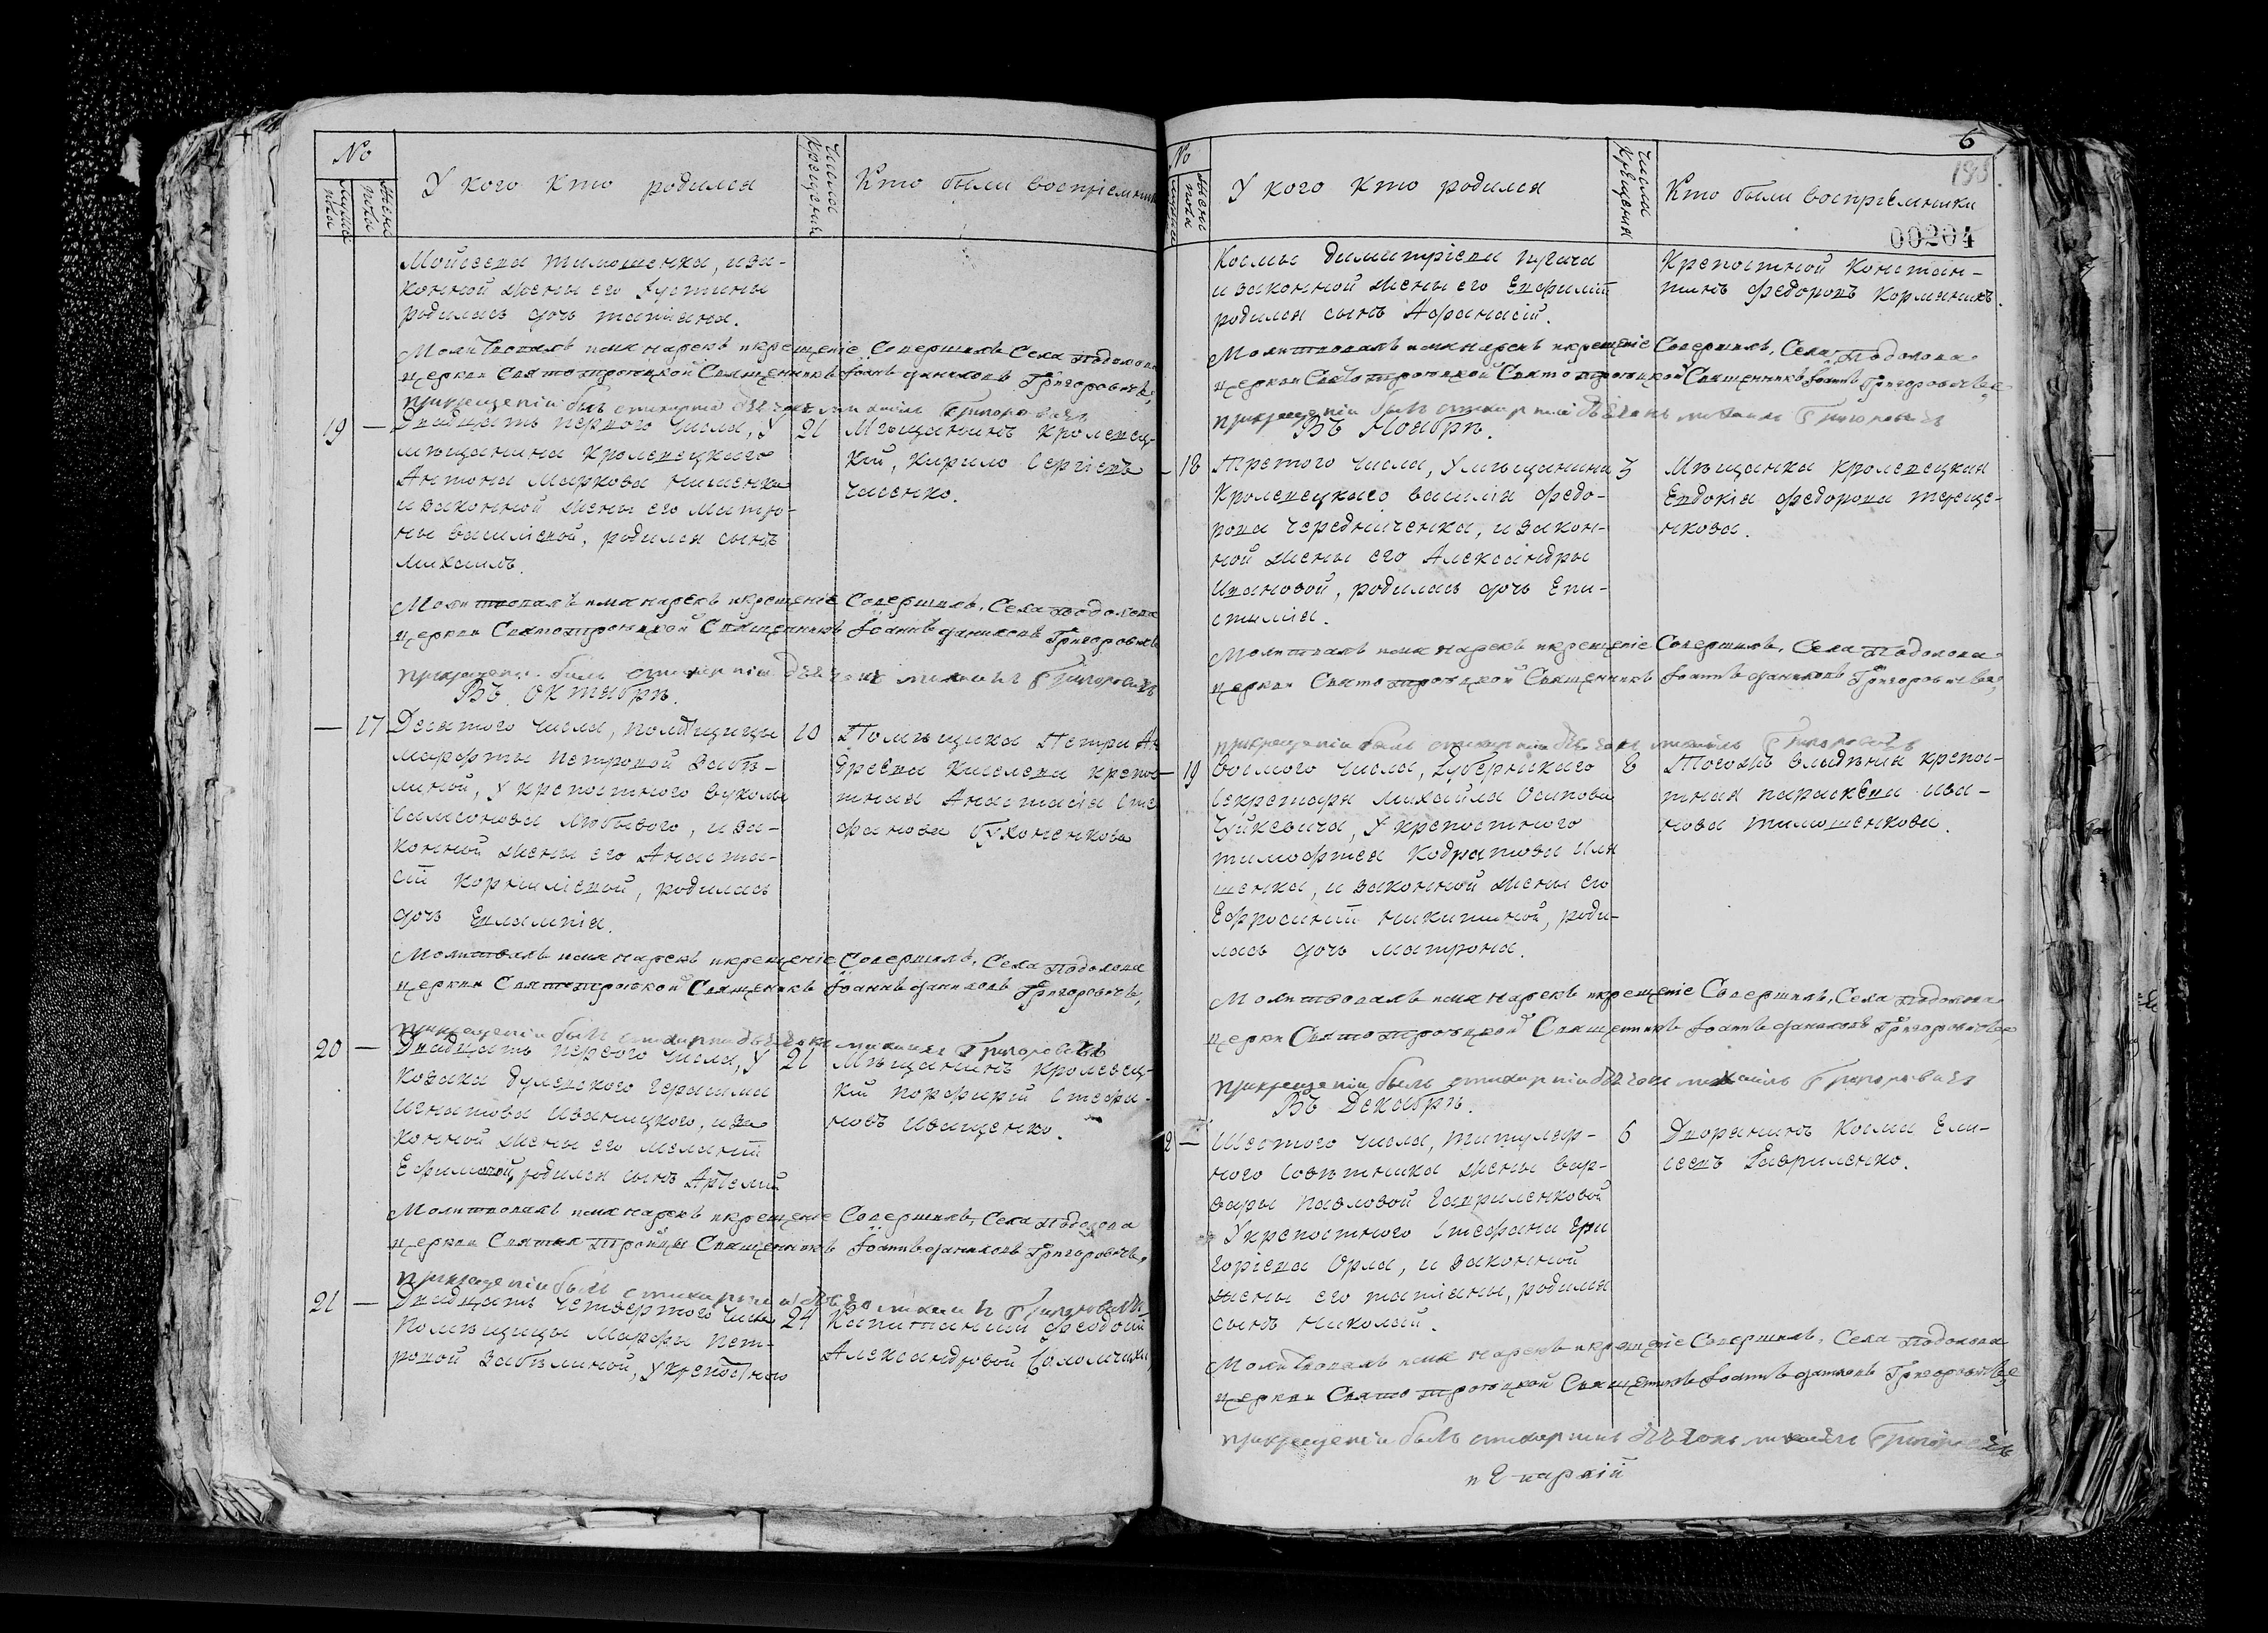 №
Мужеска пола
Женска пола
У кого кто родился
Числа Крещения
Кто были воспріемники
Мойсеева тимошенка, иза-
конной жены его Іустины
родилась дочь татіана.
Молитвовалъ имя нарекъ икрещеніе Совершилъ Села подолова
церкви Святотроицкой Священникъ Іоаннъ даниловъ Григоровичъ,
прикрещеніи былъ стихарній дьячокъ михаилъ Григоровичъ
19 — Двадцать первого числа, У
мѣщанина Кролевецкаго
Антона Маркова
и законной жены его Матро-
ны василіевой, родился сынъ
михаилъ.
21
Мѣщанинъ Кролевец-
кій, Кирило Сергіевъ
Чаенко.
Молитвовалъ имя нарекъ икрещеніе Совершилъ, Села подолова
церкви Святотроицкой Священникъ Іоаннъ даниловъ Григоровичъ
прикрещеніи былъ стихарній дьячокъ михаилъ Григоровичъ
Въ октябрѣ.
— 17 Десятого числа, помѣщицы
марфы петровой Забѣ-
линой, У крепостного вукола
Самсонова любывого, и за-
конной жены его Анаста-
сіи корниліевой, родилась
дочь Евлампія.
10
Помѣщика Петра Ан
дреева Киселева крепос
тная Анастасія Сте
фанова Бухоненкова
Молитвовалъ имя нарекъ икрещеніе Совершилъ, Села Подолова
церкви Святотроицкой Священникъ Іоаннъ даниловъ Григоровичъ,
прикрещеніи былъ стихарній дьячокъ михаилъ Григоровичъ
20 — Двадцать первого числа, У
козака дулевского герасима
игнатова иваницкого, и за
конной жены его меланіи
Ефимовой, родился сынъ Артемій
21
Мѣщанинъ кролевец-
кій порфирій Стефа-
новъ иващенко.
Молитвовалъ имя нарекъ икрещеніе Совершилъ, Села подолова
церкви Святыя Тройцы Священникъ Іоаннъ даниловъ Григоровичъ,
прикрещеніи былъ стихарній дьячокъ михаилъ Григоровичъ
21 — Двадцать четвертого числа
помѣщицы Марфы пет-
ровой Забѣлиной, У крепостного
24
Капитанши Феодосіи
Александровой Соломчихи,
6
193
00204
№
Женска пола
У кого кто родился
Числа Крещения
Кто были воспріемники
Космы димитріева пугача
и законной жены его Евфиміи
родился сынъ Афанасій.
Крепостной констан-
тинъ федоровъ кормникъ.
Молитвовалъ имя нарекъ икрещеніе Совершилъ, Села Подолова
церкви Святотроицкой Святотроицкой Священникъ Іоаннъ Григоровичъ
прикрещеніи былъ стихарній дьячокъ михаилъ Григоровичъ
Въ Ноябрѣ.
— 18 Третого числа, У мѣщанина
Кролевецкаго василія федо-
рова чередниченка, и закон-
ной жены его Александры
Ивановой, родилась дочь Епи-
стимія.
3
Мѣщанка кролевецкая
Евдокія федорова тереще-
нкова.
Молитвовалъ имя нарекъ икрещеніе Совершилъ, Села Подолова
церкви Святотроицкой Священникъ Іоаннъ даниловъ Григоровичъ
прикрещеніи былъ стихарній дьячокъ михаилъ Григоровичъ
— 19 восмого числа, Губернскаго
Секретаря михайла Осипова
Чуйкевича, У крепостного
тимофтея Кодратова Иля
шенка, и законной жены его
Ефросиніи никитиной, роди-
лась дочь матрона.
8
Тогожъ владѣния крепос-
тная параскева ива-
нова тимошенкова.
Молитвовалъ имя нарекъ икрещеніе Совершилъ, Села подолова
церкви Святотроицкой Священникъ Іоаннъ даниловъ Григоровичъ
прикрещеніи былъ стихарній дьячокъ михаилъ Григоровичъ
Въ Декабрѣ.
2 — Шестого числа, титуляр-
ного Совѣтника жены вар-
вары павловой Гавриленковой
У крепостного Стефана Гри
горіева Орла, и законной
жены его татіаны, родился
сынъ николай.
6
Дворянинъ косма Ели-
сеевъ Гавриленко.
Молитвовалъ имя нарекъ икрещеніе Совершилъ, Села Подолова
церкви Святотроицкой Священникъ Іоаннъ даниловъ Григоровичъ
прикрещеніи былъ стихарній дьячокъ михаилъ Григоровичъ